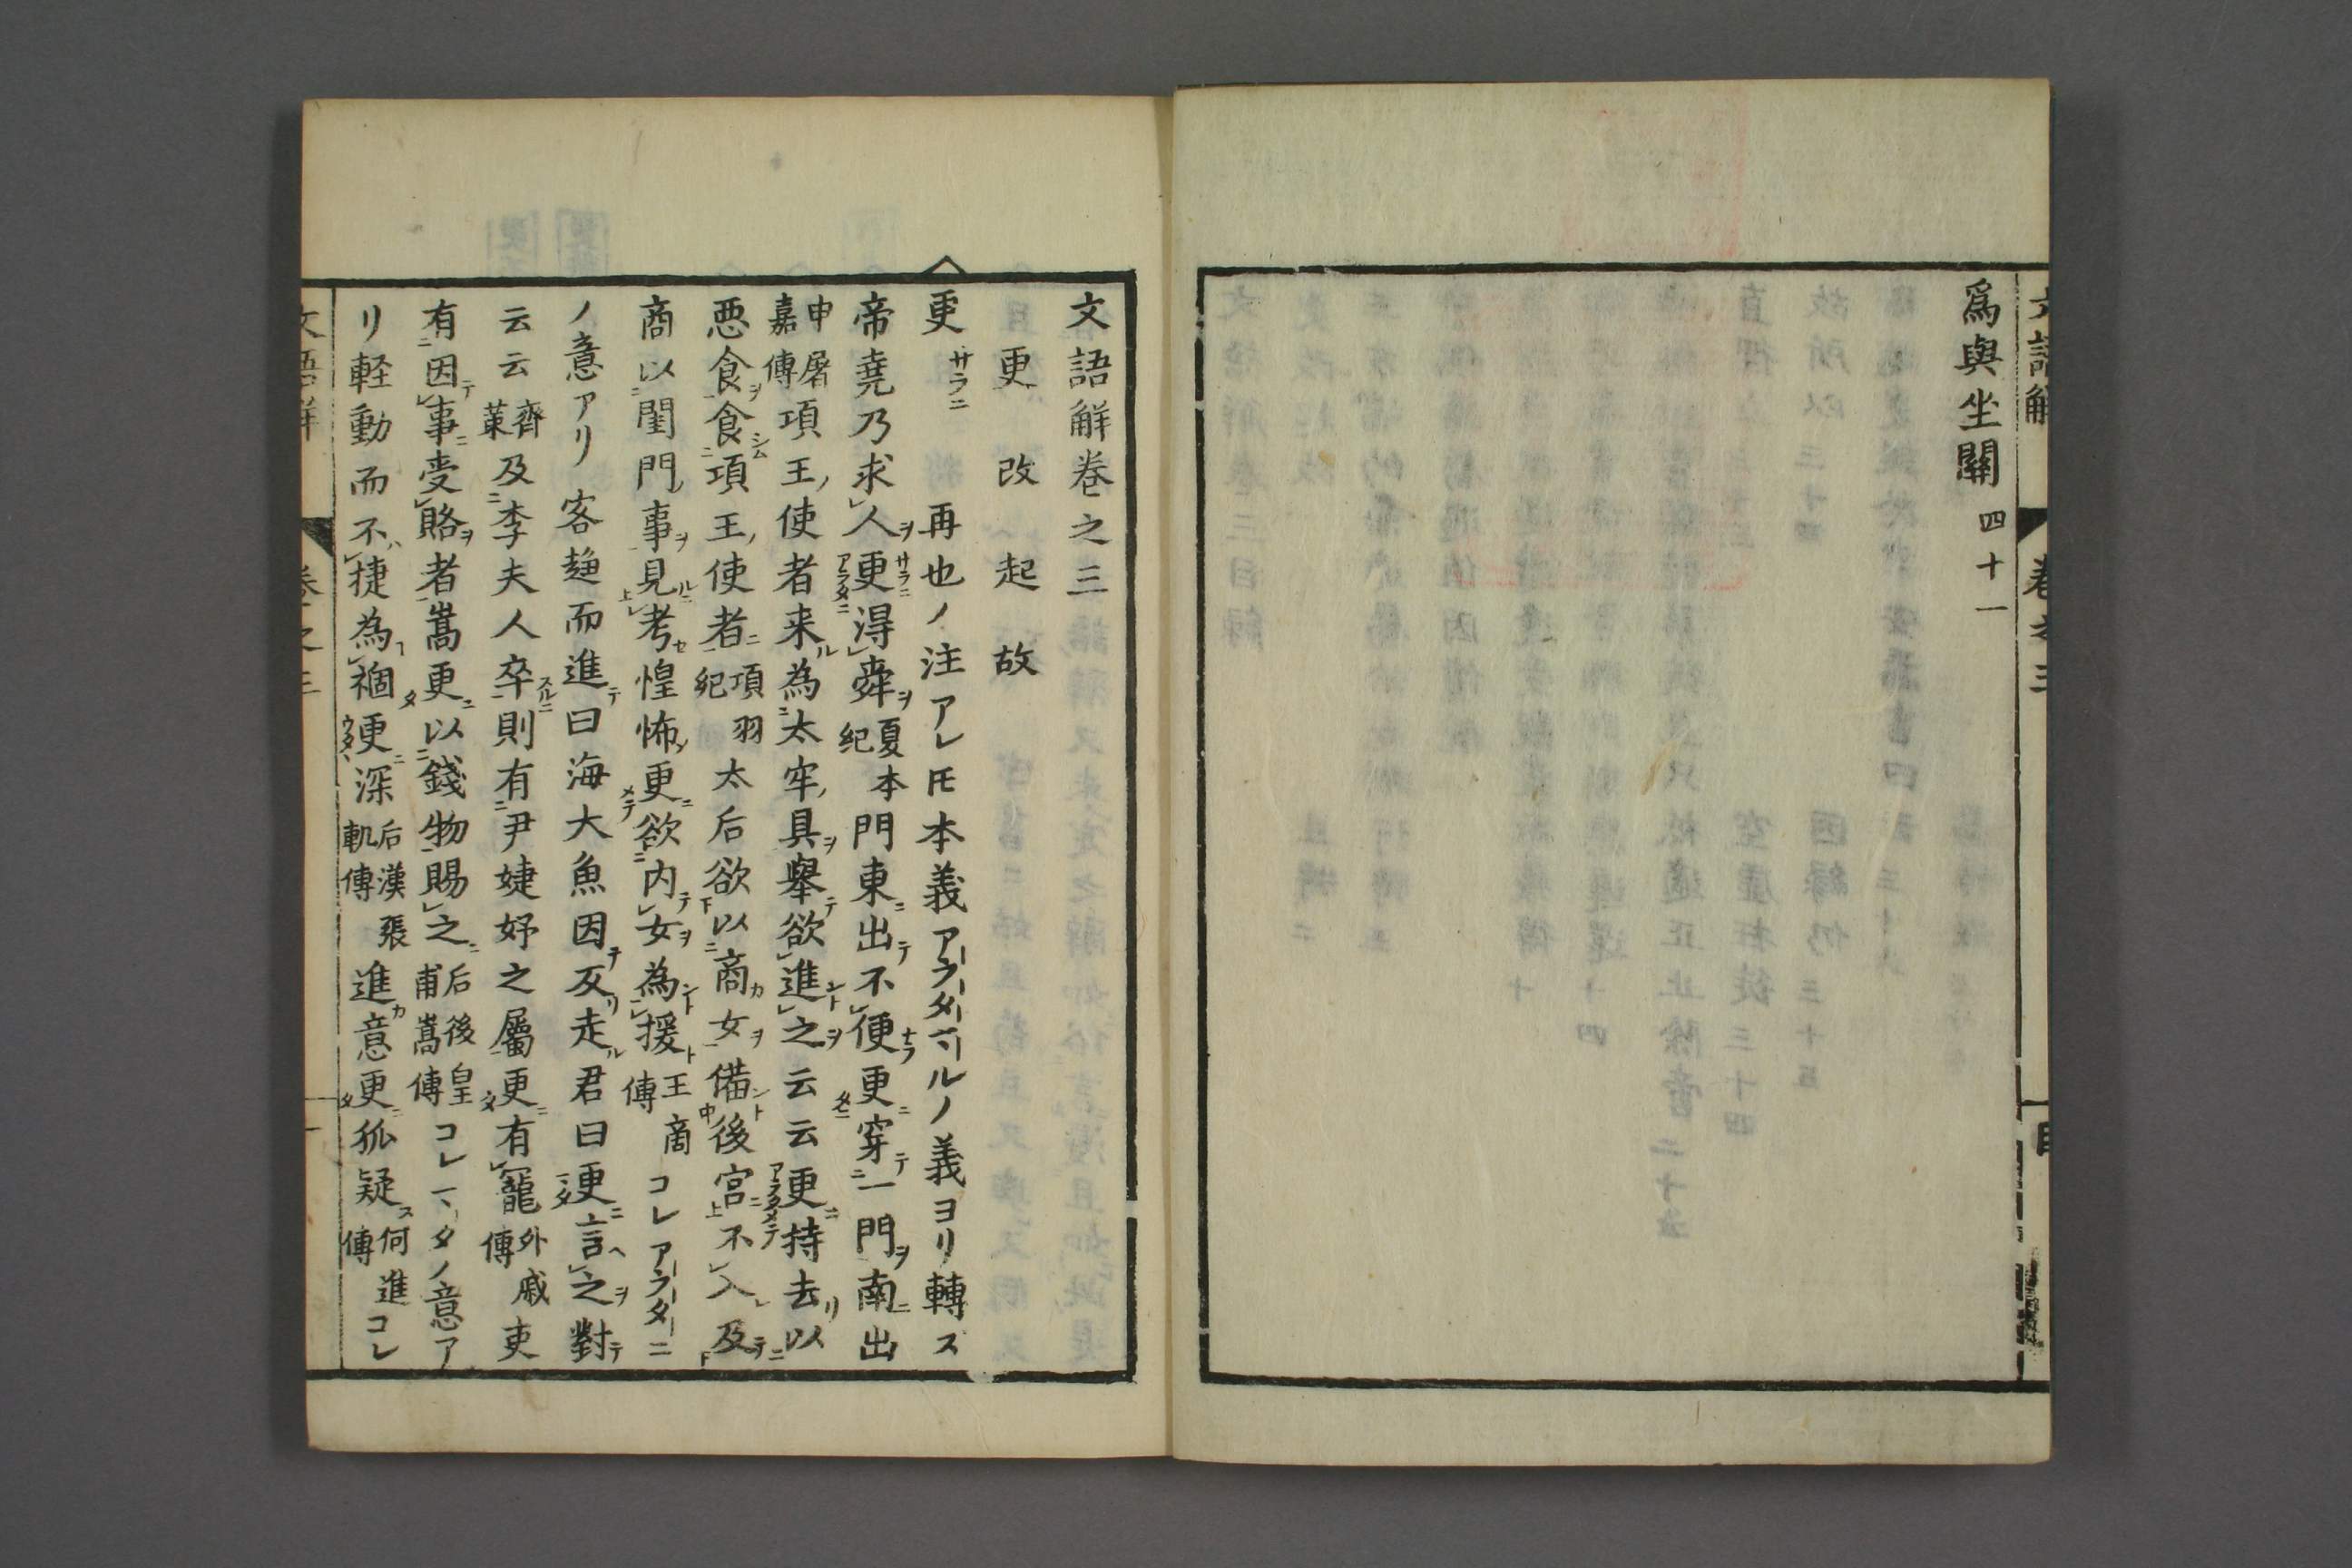 文語解 卷之三 目
爲與坐關 四十一
文語解巻之三
更 改 起 故
更 サラニ 再也ノ注アレ𪜈本義アラタマルノ義ヨリ轉ス
帝堯乃求人更得舜 夏本紀 門東出不便更穿一門南出
申屠嘉傳 項王使者来為太牢具舉欲進之云云更持去以
悪食食項王使者 項羽紀 太后欲以商女備後宮不入及
商以閨門事見考惶怖更欲内女為援 王商傳 コレアラタニ
ノ意アリ 客趨而進曰海大魚因反走君曰更言之對
云云 齊策 及李夫人卒則有尹婕妤之屬更有寵 外戚傳 吏
有因事受賂者嵩更以錢物賜之 后後皇甫嵩傳 コレマタノ意ア
リ軽動而不捷為禍更深 后漢張軌傳 進意更狐疑 何進傳 コレ
文語解 卷之三 一